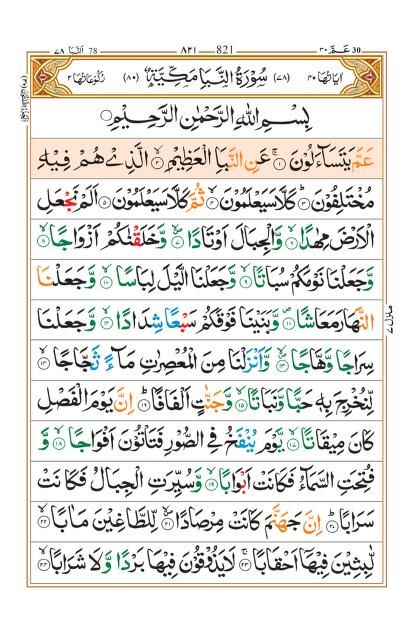 النبا ٧٨ 78 ٨٢١ 821 عم ٣٠ 30
اٰيَاتُهَا ٤٠ (٧٨) سُوْرَةُ النَّبَاِ مَكِّيَّةٌ (٨٠) رُكُوْعَاتُهَا ٢
بِسْمِ اللهِ الرَّحْمٰنِ الرَّحِيْمِ
عَمَّ يَتَسَآءَلُوْنَ ۚ﴿۱﴾ عَنِ النَّبَاِ الْعَظِيْمِ ۙ﴿۲﴾ الَّذِىْ هُمْ فِيْهِ
مُخْتَلِفُوْنَ ؕ﴿۳﴾ كَلَّا سَيَعْلَمُوْنَ ۙ﴿۴﴾ ثُمَّ كَلَّا سَيَعْلَمُوْنَ ﴿۵﴾ اَلَمْ نَجْعَلِ
الْاَرْضَ مِهٰدًا ۙ﴿۶﴾ وَّالْجِبَالَ اَوْتَادًا ۪ۙ﴿۷﴾ وَّخَلَقْنٰكُمْ اَزْوَاجًا ۙ﴿۸﴾
وَّجَعَلْنَا نَوْمَكُمْ سُبَاتًا ۙ﴿۹﴾ وَّجَعَلْنَا الَّيْلَ لِبَاسًا ۙ﴿۱۰﴾ وَّجَعَلْنَا
النَّهَارَ مَعَاشًا ۪﴿۱۱﴾ وَّبَنَيْنَا فَوْقَكُمْ سَبْعًا شِدَادًا ۙ﴿۱۲﴾ وَّجَعَلْنَا
سِرَاجًا وَّهَّاجًا ۪ۙ﴿۱۳﴾ وَّاَنْزَلْنَا مِنَ الْمُعْصِرٰتِ مَآءً ثَجَّاجًا ۙ﴿۱۴﴾
لِّنُخْرِجَ بِهٖ حَبًّا وَّنَبَاتًا ۙ﴿۱۵﴾ وَّجَنّٰتٍ اَلْفَافًا ؕ﴿۱۶﴾ اِنَّ يَوْمَ الْفَصْلِ
كَانَ مِيْقَاتًا ۙ﴿۱۷﴾ يَّوْمَ يُنْفَخُ فِى الصُّوْرِ فَتَاْتُوْنَ اَفْوَاجًا ۙ﴿۱۸﴾ وَّ
فُتِحَتِ السَّمَآءُ فَكَانَتْ اَبْوَابًا ۙ﴿۱۹﴾ وَّسُيِّرَتِ الْجِبَالُ فَكَانَتْ
سَرَابًا ؕ﴿۲۰﴾ اِنَّ جَهَنَّمَ كَانَتْ مِرْصَادًا ۪ۙ﴿۲۱﴾ لِّلطَّاغِيْنَ مَاٰبًا ۙ﴿۲۲﴾
لّٰبِثِيْنَ فِيْهَاۤ اَحْقَابًا ۚ﴿۲۳﴾ لَا يَذُوْقُوْنَ فِيْهَا بَرْدًا وَّلَا شَرَابًا ۙ﴿۲۴﴾